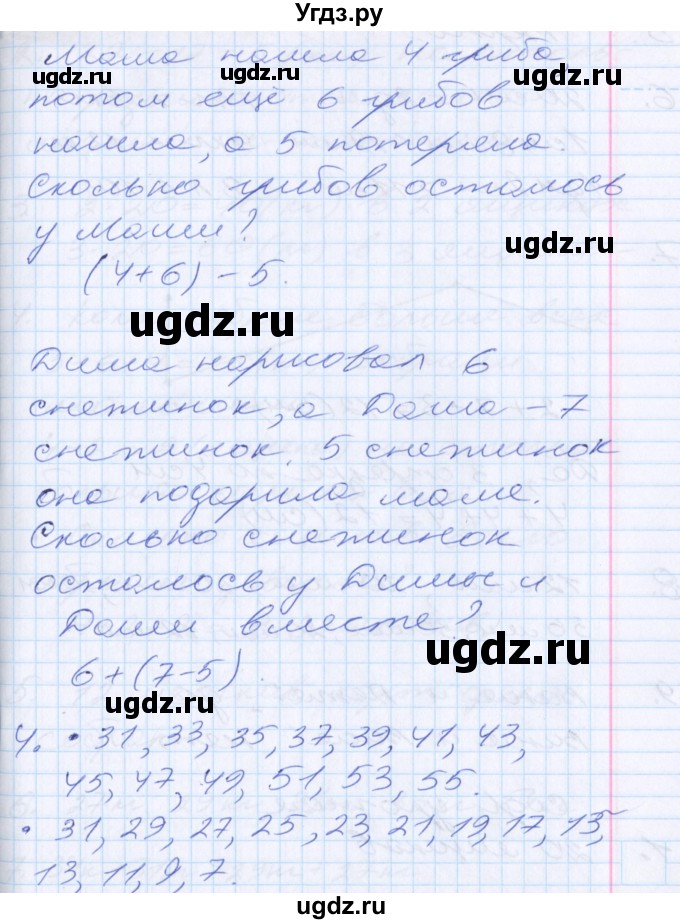 Угдз.ру
Маша нашла 4 гриба
ugdz.ru ugdz.ru ugdz.ru
потом ещё 6 грибов
нашла, а 5 потеряла.
Сколько грибов осталось
у Маши?
ugdz.ru
(4+6) - 5.
ugdz.ru
Дима нарисовал 6
снежинок, а Даша - 7
снежинок. 5 снежинок
она подарила маме.
Сколько снежинок
осталось у Димы и
Даши вместе?
ugdz.ru
6+(7-5).
ugdz.ru
4. • 31, 33, 35, 37, 39, 41, 43,
45, 47, 49, 51, 53, 55.
• 31, 29, 27, 25, 23, 21, 19, 17, 15,
13, 11, 9, 7.
ugdz.ru
ugdz.ru